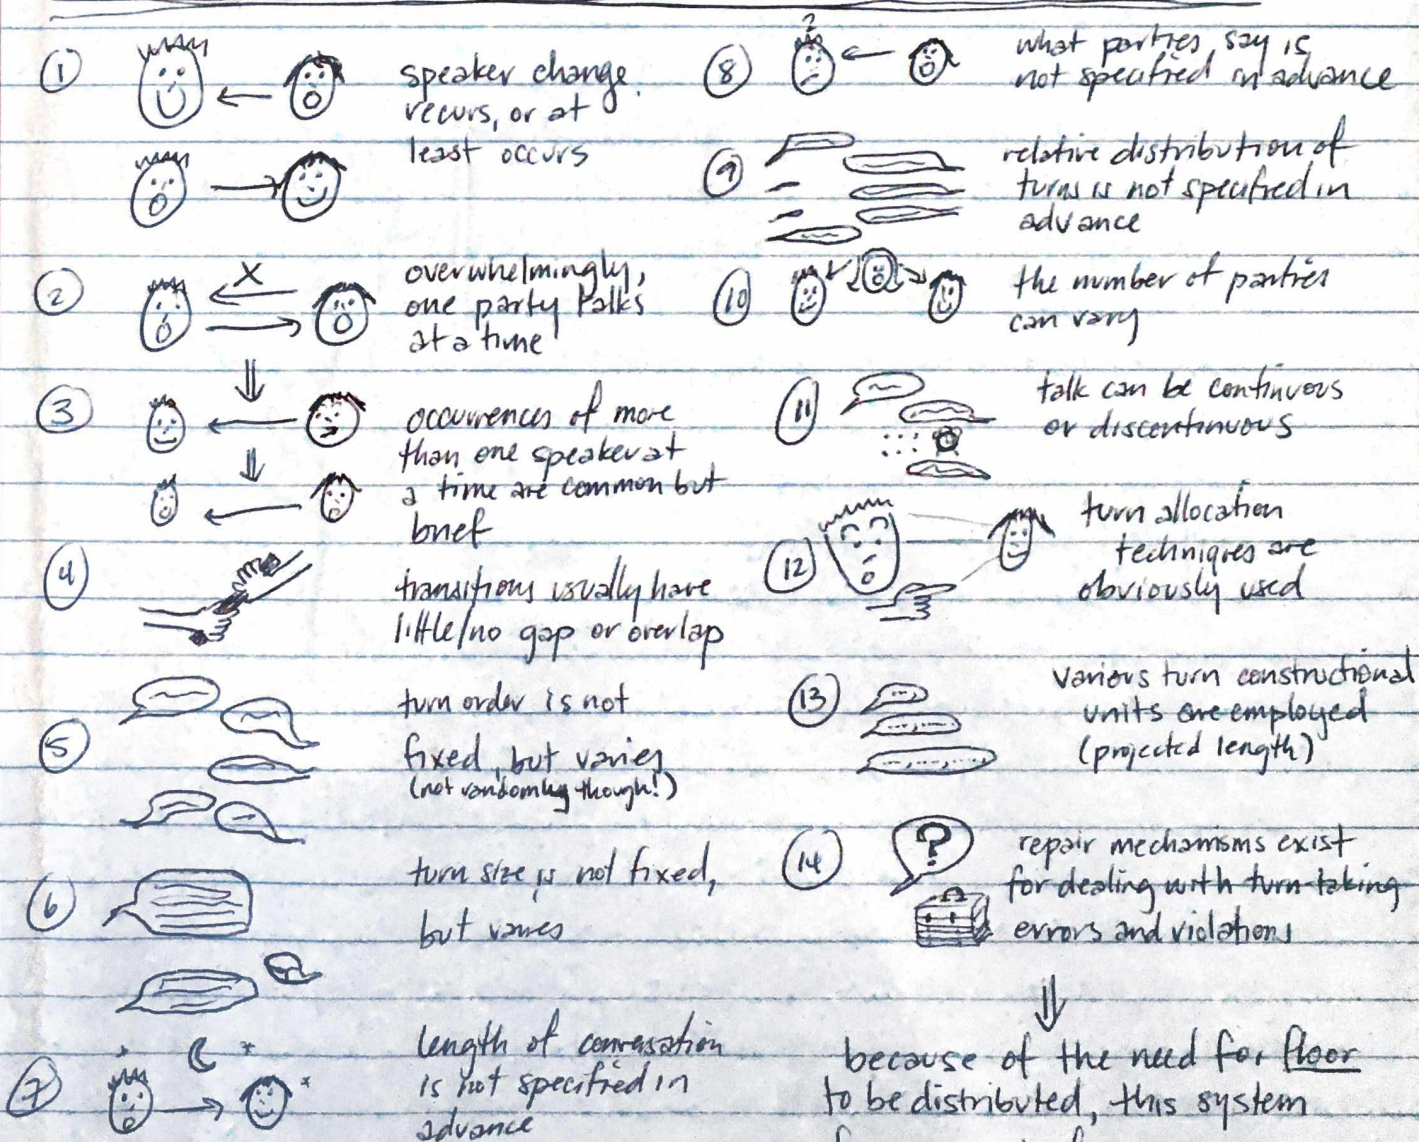 ① speaker change
recurs, or at
least occurs
② X overwhelmingly,
one party talks
at a time
③ occurrences of more
than one speaker at
a time are common but
brief
④ transitions usually have
little/no gap or overlap
⑤ turn order is not
fixed, but varies
(not randomly though!)
⑥ turn size is not fixed,
but varies
⑦ length of conversation
is not specified in
advance
⑧ ? what parties say is
not specified in advance
⑨ relative distribution of
turns is not specified in
advance
⑩ the number of parties
can vary
⑪ talk can be continuous
or discontinuous
⑫ turn allocation
techniques are
obviously used
⑬ various turn constructional
units are employed
(projected length)
⑭ ? repair mechanisms exist
for dealing with turn-taking
errors and violations
⇓
because of the need for floor
to be distributed, this system